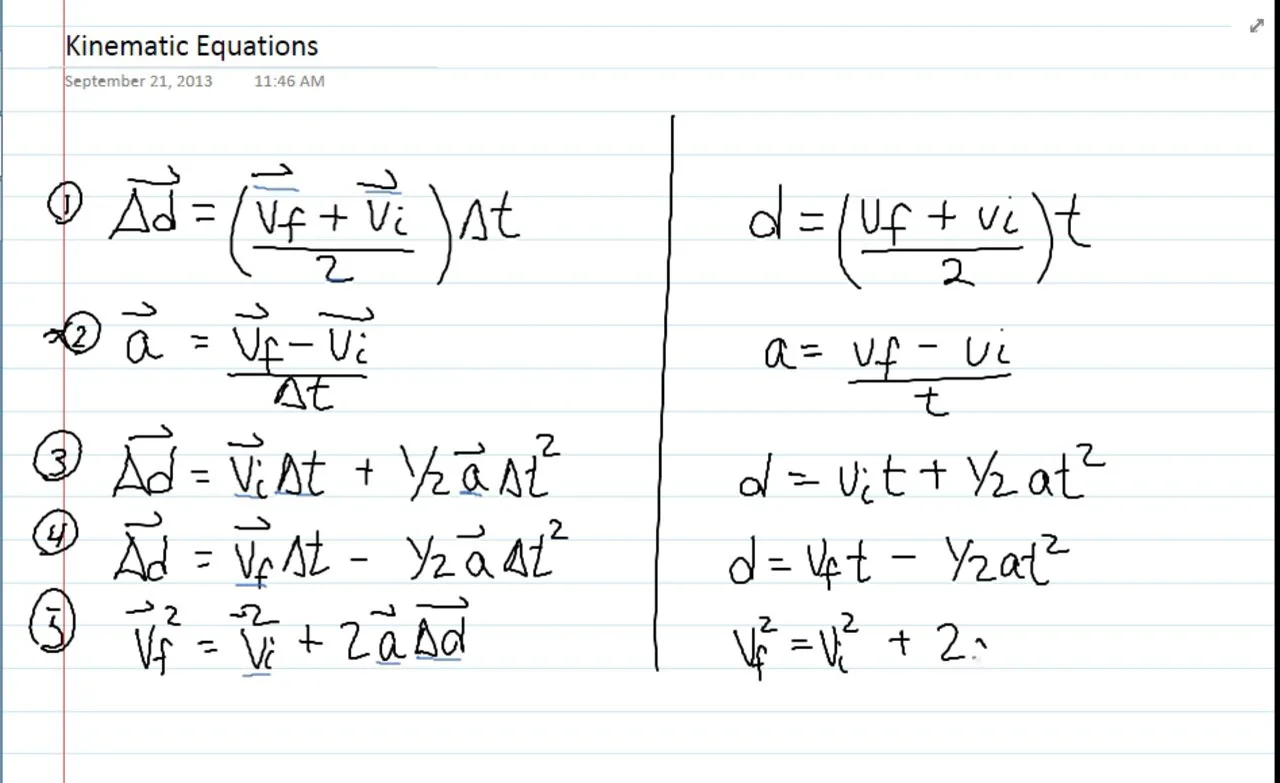 Kinematic Equations
September 21, 2013 11:46 AM
① Δd⃗ = (v⃗f + v⃗i / 2) Δt
d = (vf + vi / 2) t
② a⃗ = v⃗f − v⃗i / Δt
a = vf − vi / t
③ Δd⃗ = v⃗iΔt + 1/2 a⃗ Δt²
d = vit + 1/2 at²
④ Δd⃗ = v⃗fΔt − 1/2 a⃗ Δt²
d = vft − 1/2 at²
⑤ v⃗f² = v⃗i² + 2a⃗Δd⃗
vf² = vi² + 2